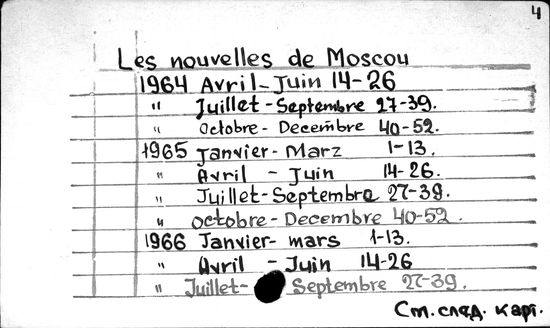 4
Les nouvelles de Moscou
1964 Avril - Juin 14-26
" Juillet - Septembre 27-39.
" Octobre - Decembre 40-52.
1965 Janvier - Marz 1-13.
" Avril - Juin 14-26.
" Juillet - Septembre 27-39.
" Octobre - Decembre 40-52.
1966 Janvier - mars 1-13.
" Avril - Juin 14-26
" Juillet - Septembre 27-39.
См. след. карт.